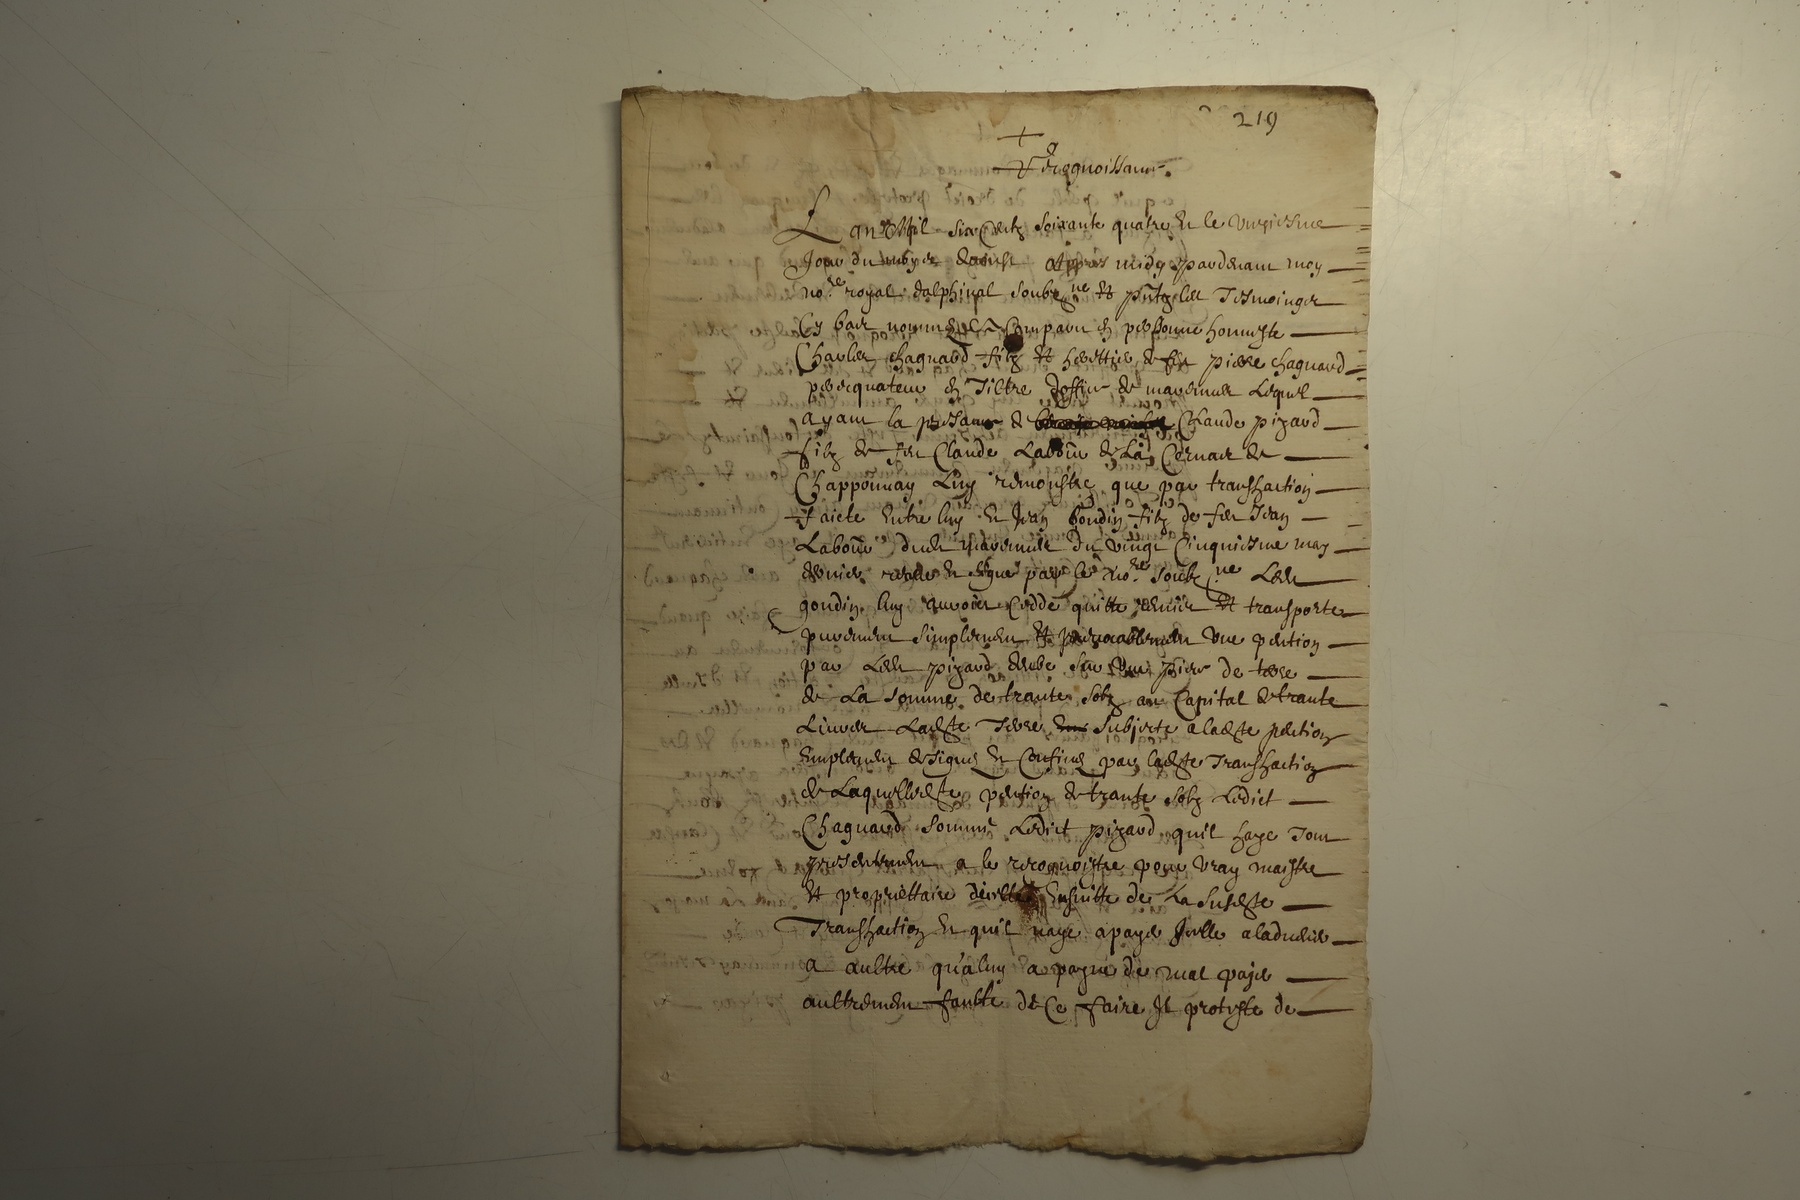 219
+
Recognoissance.
L'an Mil six Centz soixante quatre et le vingtiesme
Jour du moys d'aoust appres midy pardevant moy
no.re royal dalphinal soubz.ne et pntz les Tesmoingts
Cy bas nommes Comparu en personne honneste
Charles chaguard filz et herittier de feu pierre chaguard
perecquateur en Tiltre d'office de marennes Lequel
ayant la presance de Claude pizard
filz de feu Claude Labour de La de
Chapponnay Luy remonstre que par transaction
faicte entre luy et Jean goudin filz de feu Jean
Labour dudt marennes du vingt Cinquiesme may
dernier receue et signé par le no.re soubz.ne Ledt
goudin luy avoir Cedde quitte remis et transporter
purement simplement et une pention
par Ledt pizard deube sur une piece de terre
de La somme de trante solz au Capital de trante
Livres Ladte Terre subjecte a ladte pention
Emplement designé et Confiné par ladte Transaction
de Laquelledte pention de trante solz Ledict
Chaguard somme Ledict pizard qu'il haye Tout
presentement a le recognoistre pour vray maistre
et propriettaire d'icelle Ensuitte de La susdte
Transaction et qu'il naye a payer Icelle a ladvenir
a aultre qu'a luy a peyne de mal payer
aultrement faulte de Ce faire Il proteste de